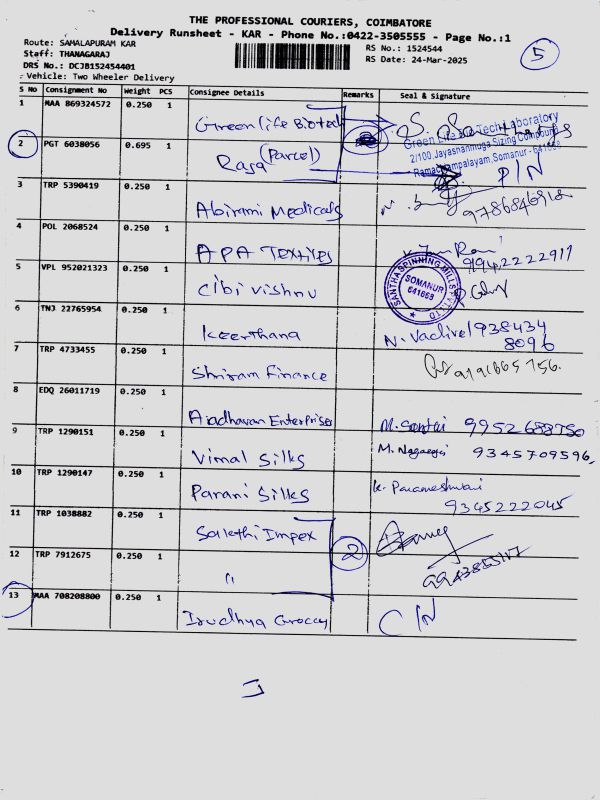 THE PROFESSIONAL COURIERS, COIMBATORE
Delivery Runsheet - KAR - Phone No.:0422-3505555 - Page No.:1
Route: SAMALAPURAM KAR RS No.: 1524544
Staff: THANAGARAJ RS Date: 24-Mar-2025
5
DRS No.: DCJB152454401
Vehicle: Two Wheeler Delivery
S No Consignment No Weight PCS Consignee Details Remarks Seal & Signature
1 MAA 869324572 0.250 1 Greenlife Biotech
Green Life Bio Tech Laboratory
2/100, Jayashanmuga Sizing Compound
Ramachampalayam, Somanur - 641668
2 PGT 6038056 0.695 1 Raja (Parcel) P/N
3 TRP 5390419 0.250 1 Abirami Medicals 9786846912
4 POL 2068524 0.250 1 APA Textiles 9942222917
5 VPL 952021323 0.250 1 Cibi vishnu
SANTHA SPINNING MILLS PVT LTD
SOMANUR
641668
6 TNJ 22765954 0.250 1 Keerthana N. Vadivel 938434
8096
7 TRP 4733455 0.250 1 Shriram Finance
8 EDQ 26011719 0.250 1 Aadhavan Enterprises M. Santhi 9952688750
9 TRP 1290151 0.250 1 Vimal Silks M. Nagaraj 9345709596,
10 TRP 1290147 0.250 1 Parani Silks K. Parameshwari
9345222045
11 TRP 1038882 0.250 1 Sakthi Impex
2
12 TRP 7912675 0.250 1 "
13 MAA 708208800 0.250 1 Irudhya Groccy C/N